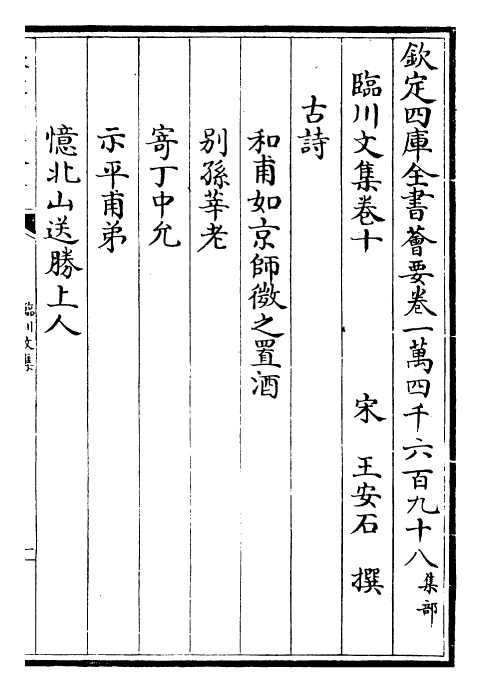 欽定四庫全書薈要卷一萬四千六百九十八 集部
臨川文集卷十 宋 王安石 撰
古詩
和甫如京師微之置酒
别孫莘老
寄丁中允
示平甫弟
憶北山送勝上人
臨川文集